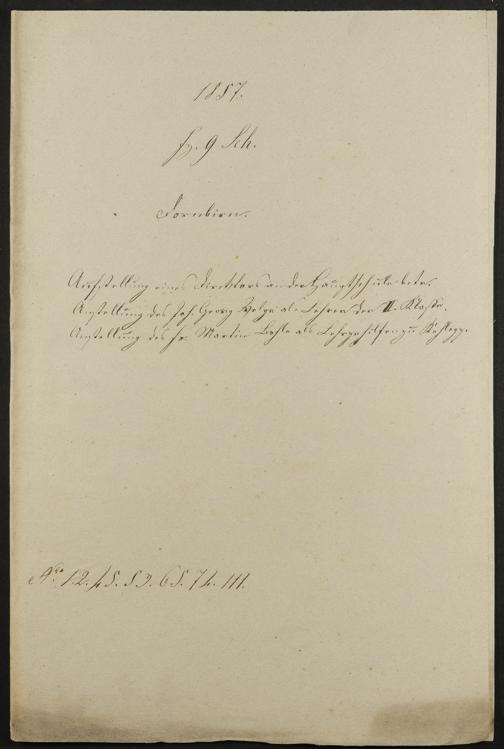 1857.
Fz. 9 Sch.
Dornbirn.
Aufstellung eines Direktors an der Hauptschule betr.
Anstellung des Joh. Georg als Lehrer der II. Klasse.
Anstellung des Fr. Martin als Lehrgehilfen zu
Nro 12. 45. 59. 65. 74. 111.